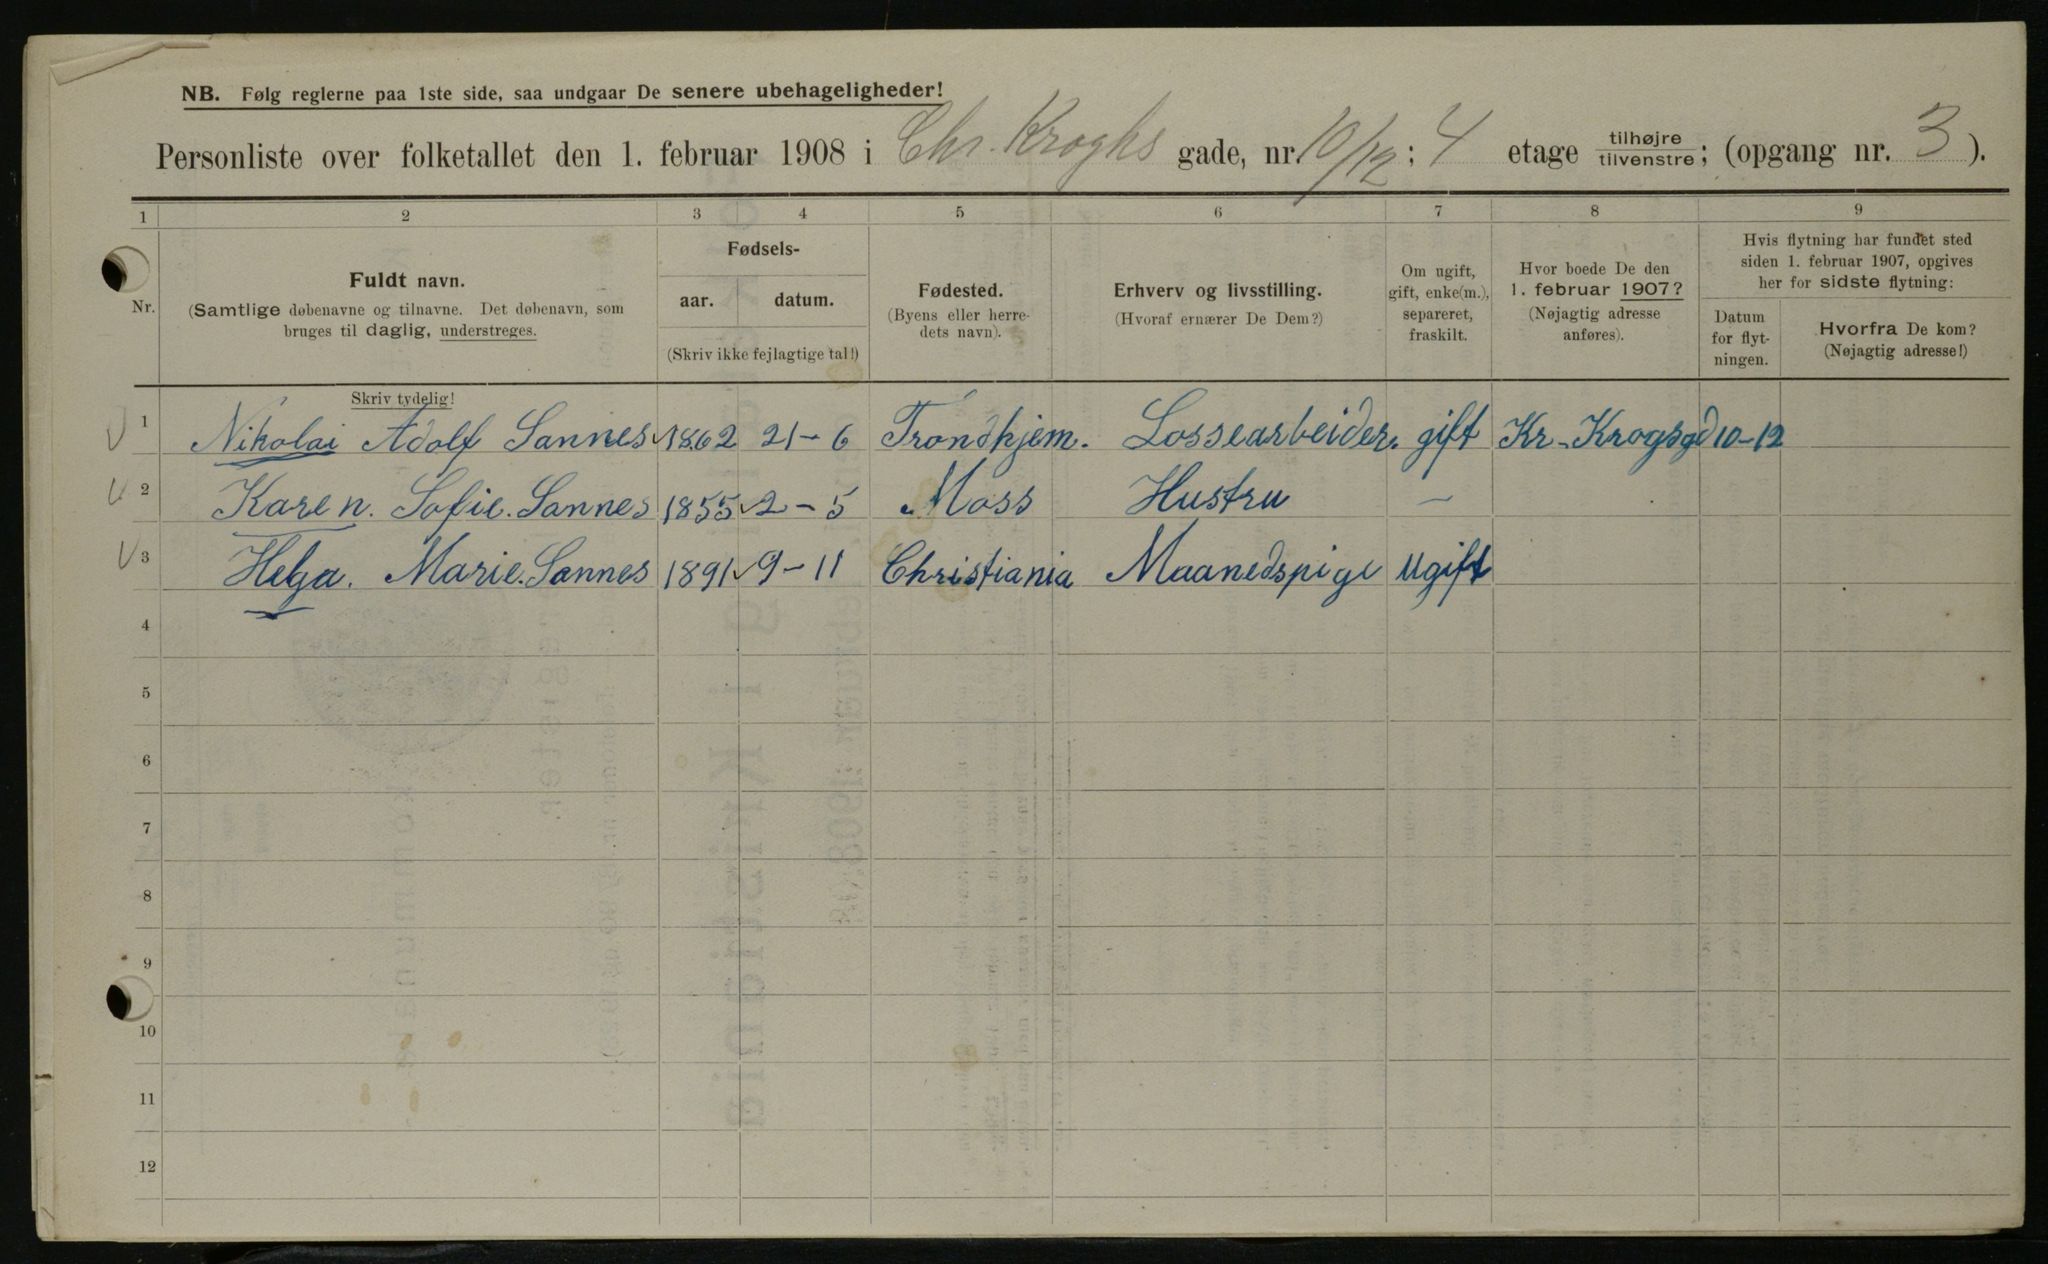 NB. Følg reglerne paa 1ste side, saa undgaar De senere ubehageligheder!
Personliste over folketallet den 1. februar 1908 i Chr. Kroghs gade, nr. 10/12; 4 etage tilhøjre tilvenstre; (opgang nr. 3).
1 2 3 4 5 6 7 8 9
Nr.
Fuldt navn.
(Samtlige døbenavne og tilnavne. Det døbenavn, som
bruges til daglig, understreges.
Fødsels-
aar. datum.
(Skriv ikke fejlagtige tal!)
Fødested.
(Byens eller herre-
dets navn).
Erhverv og livsstilling.
(Hvoraf ernærer De Dem?)
Om ugift,
gift, enke(m.),
separeret,
fraskilt.
Hvor boede De den
1. februar 1907?
(Nøjagtig adresse
anføres).
Hvis flytning har fundet sted
siden 1. februar 1907, opgives
her for sidste flytning:
Datum
for flyt-
ningen.
Hvorfra De kom?
(Nøjagtig adresse!)
Skriv tydelig!
1 Nikolai Adolf Sannes 1862 21-6 Trondhjem. Lossearbeider. gift Kr. Krogsgd 10-12
2 Karen. Sofie. Sannes 1855 2-5 Moss Hustru -
3 Helga. Marie. Sannes 1891 9-11 Christiania Maanedspige Ugift
4
5
6
7
8
9
10
11
12